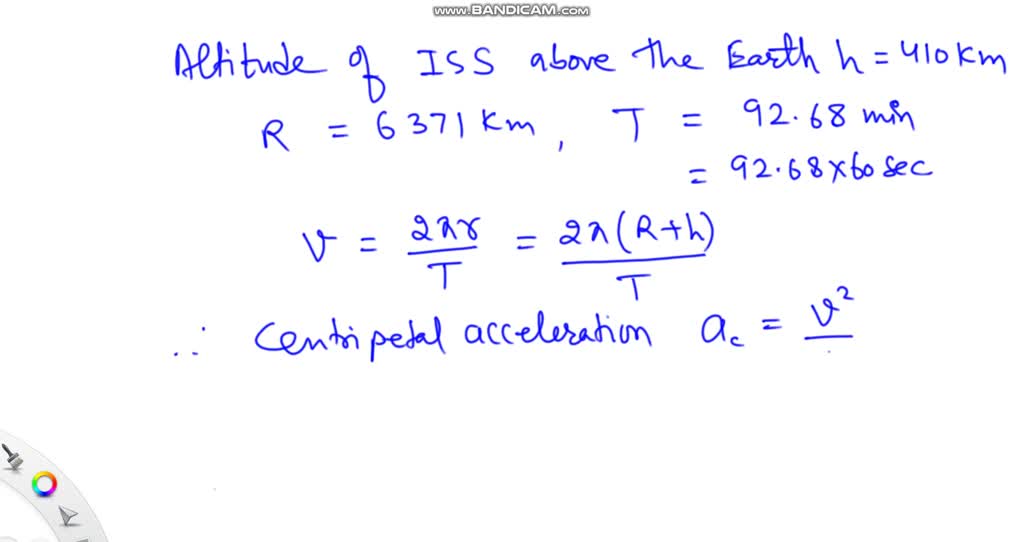 www.BANDICAM.com
Altitude of ISS above the Earth h = 410 Km
R = 6371 Km, T = 92.68 min
= 92.68 × 60 sec
v = 2πr/T = 2π(R+h)/T
∴ Centripetal acceleration a_c = v²/